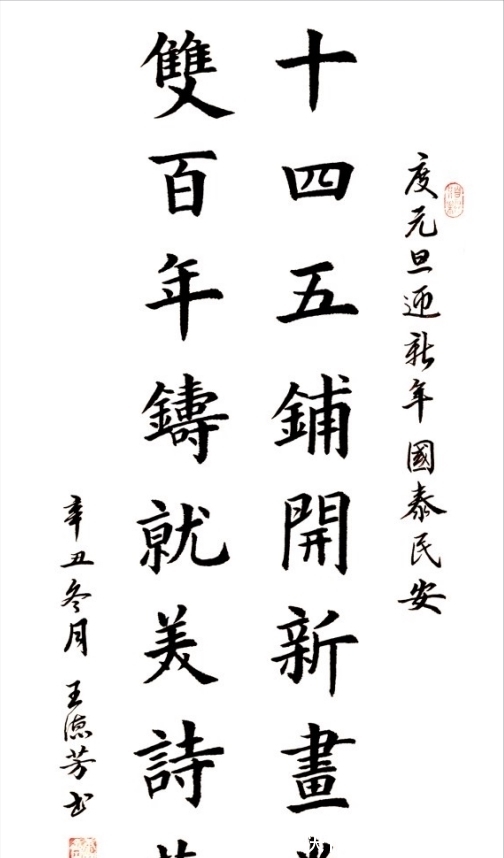 度元旦迎新年國泰民安
十四五鋪開新畫
雙百年鑄就美詩
辛丑冬月 王德芳书